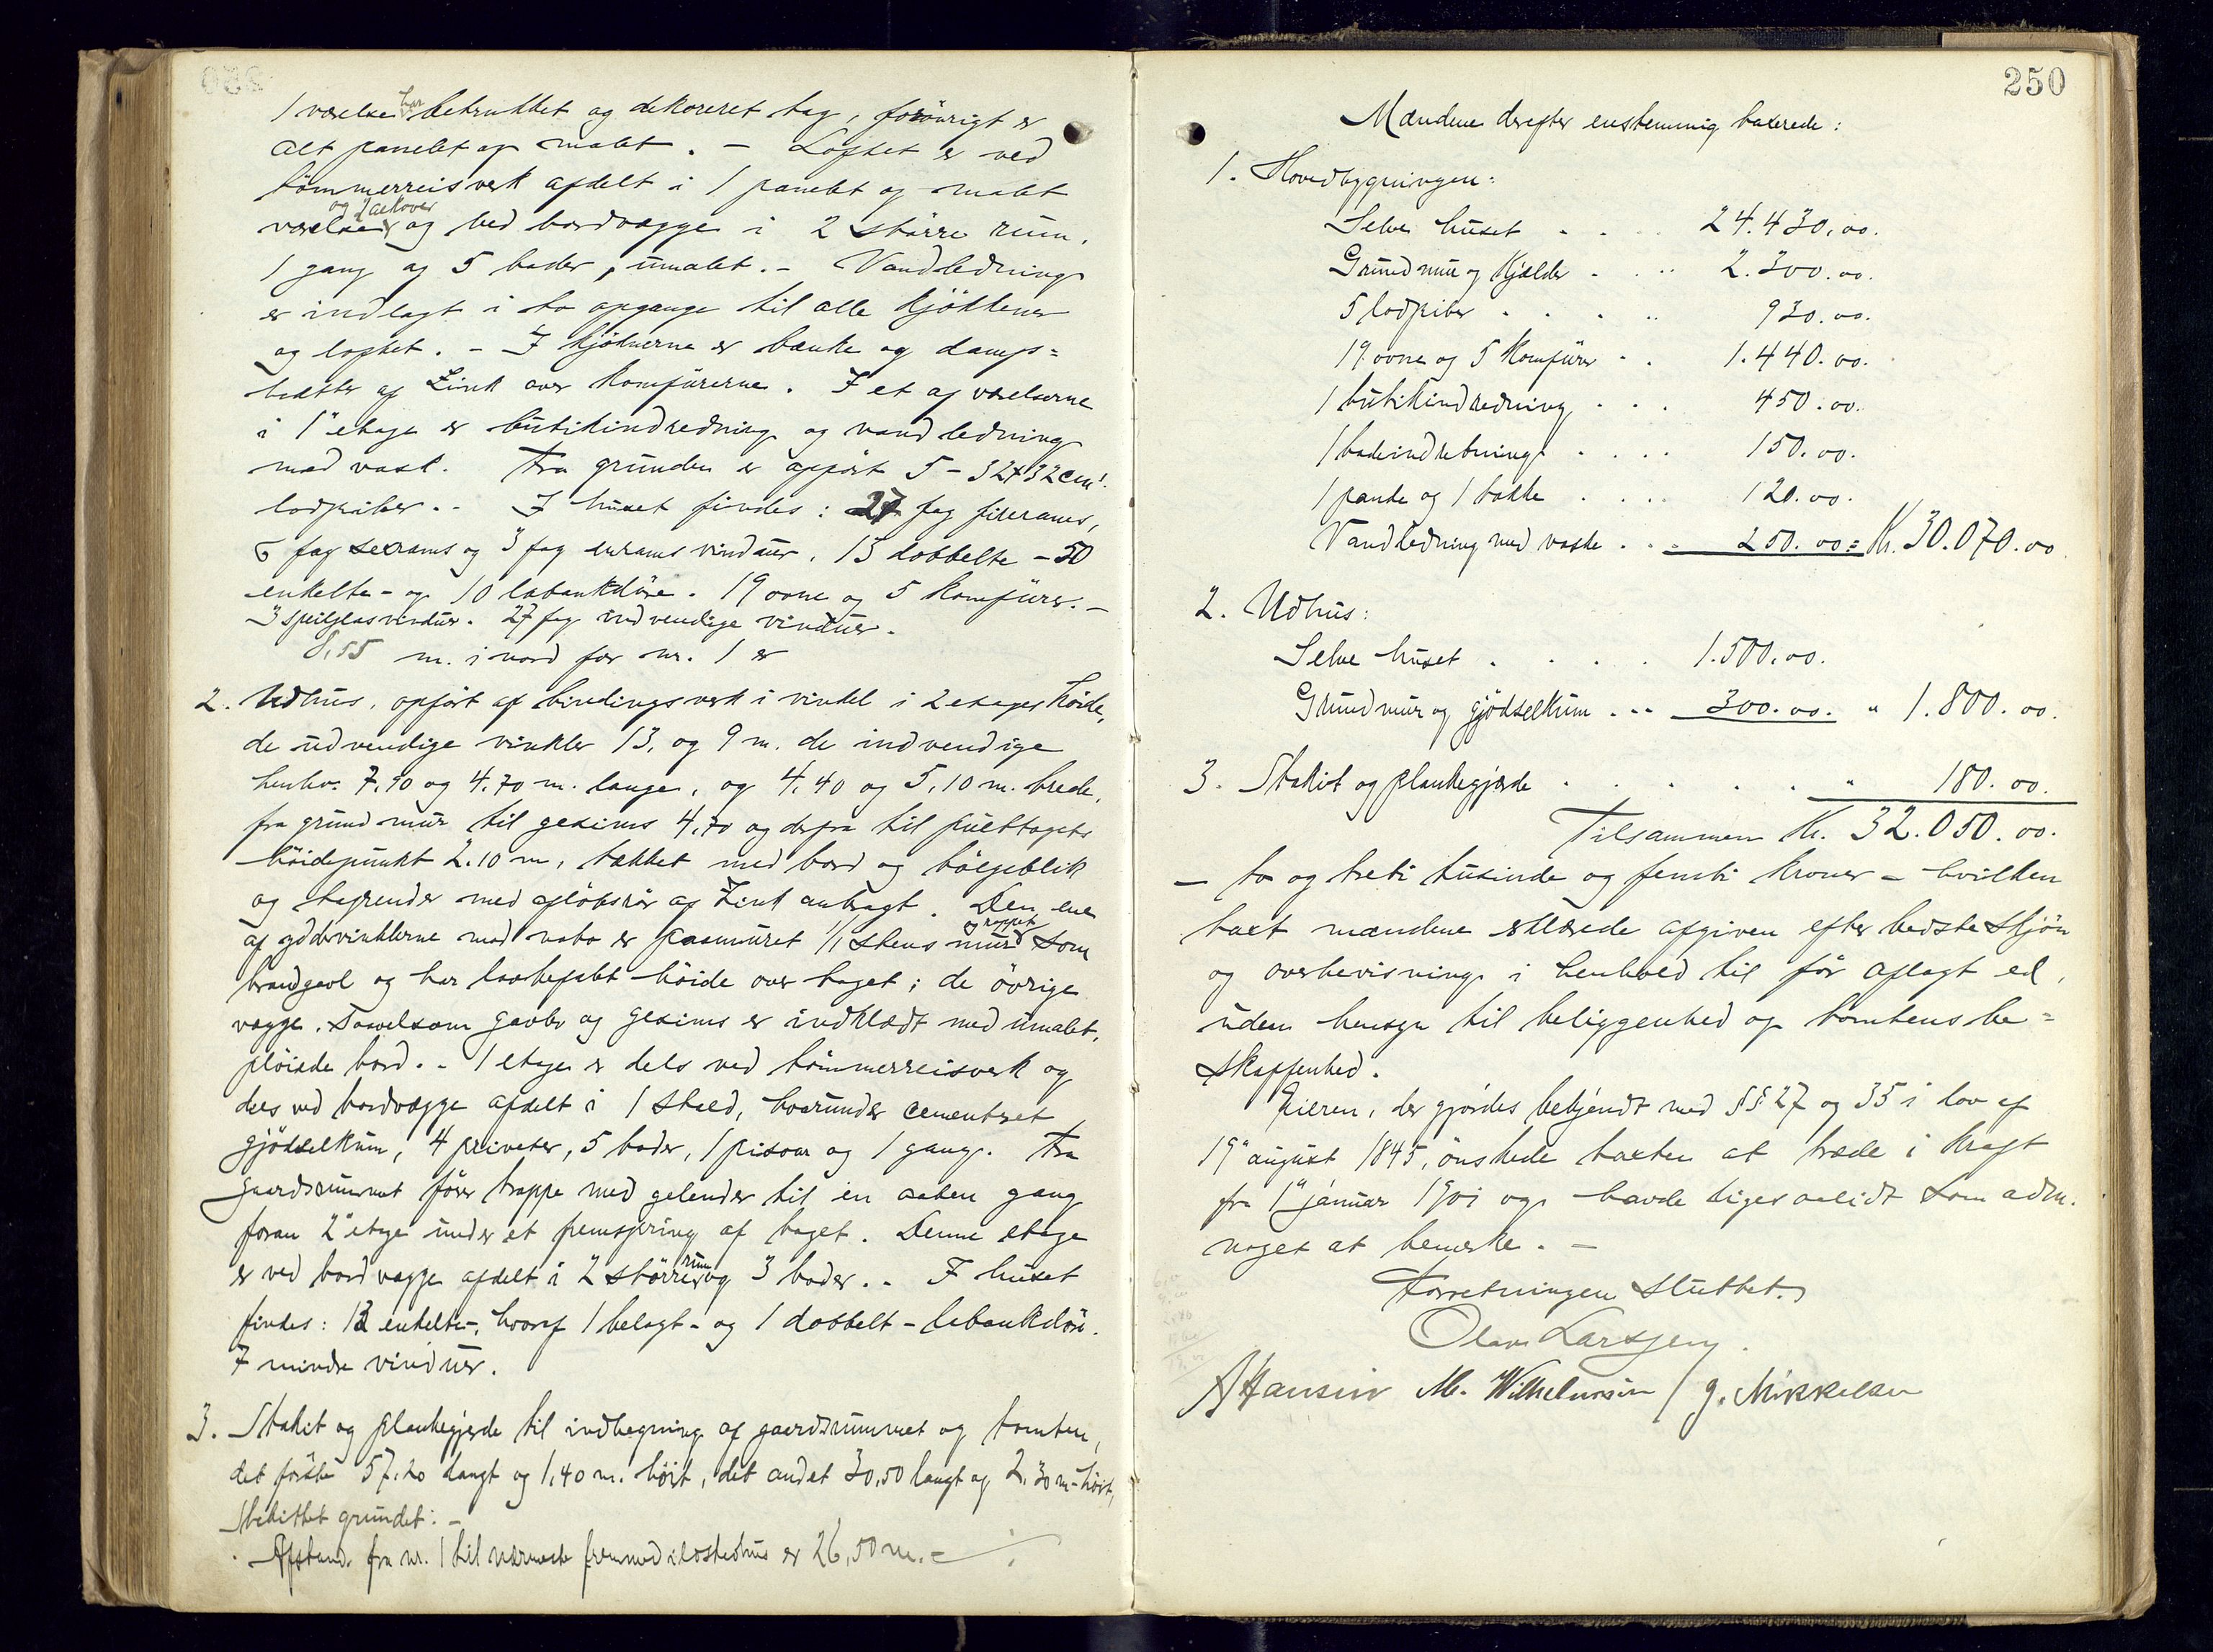 1 værelse har betrukket og dekoreret tag, forövrigt er
alt panelet og malet. - Loftet er ved
tömmerreisverk afdelt i 1 panelt og malet
værelse og 2 alkover og ved bordvægge i 2 större rum,
1 gang og 5 boder, umalet. - Vandledning
er indlagt i to opgange til alle kjökkener
og loftet. - I kjöknerne er bænke og damp=
hætter af Zink over komfürerne. I et af værelserne
i 1" etage er butikindredning og vandledning
med vask. Fra grunden er opfört 5 - 32x32 cm!
lodpiber. - I huset findes: 27 fag firerams,
6 fag sexrams og 3 fag enrams vinduer, 13 dobbelte - 50
enkelte - og 10 labankdöre. 19 ovne og 5 komfürer. -
3 speilglasvinduer. 27 fag indvendige vinduer.
8,55 m. i nord for nr. 1 er
2. Udhus, opfört af bindingsverk i vinkel i 2 etages höide,
de udvendige vinkler 13, og 9 m. de indvendige
henhv. 7,90 og 4.70 m. lange, og 4,40 og 5,10 m. brede,
fra grundmur til gesims 4,70 og derfra til pulttagets
höidepunkt 2.10 m, tækket med bord og bölgeblik
og tagrender med aflöbsrör af Zink anbragt. Den ene
af ydervinklerne mod nabo er paamuret 1/1 stens og rappet mur som
brandgavl og har lovbefalet höide over taget; de övrige
vægge, saavelsom gavler og gesims er indklædt med umalet,
plöiede bord. - 1 etage er dels ved tömmerreisverk og
dels ved bordvægge afdelt i 1 stald, hvorunder cementeret
gjödselkum, 4 priveter, 5 boder, 1 pissoar og 1 gang. Fra
gaardsrummet förer trappe med gelender til en aaben gang
foran 2" etage under et fremspring af taget. Denne etage
er ved bordvægge afdelt i 2 större rum og 3 boder. - I huset
findes: 12 enkelte-, hvoraf 1 belagt - og 1 dobbelt - labankdör.
7 mindre vinduer.
3. Stakit og plankegjerde til indhegning af gaardsrummet og tomten,
det förste 57,20 langt og 1,40 m. höit, det andet 30,50 langt og 2,30 m. höit,
stakittet grundet: -
Afstand fra nr. 1 til nærmeste fremmed ildstedhus er 26,50 m. - ./.
250
Mændene derefter enstemmig taxerede:
1. Hovedbygningen:
Selve huset . . . . 24.430,00.
Grundmur og Kjælder . . . 2.300.00.
5 lodpiber . . . . 930.00.
19 ovne og 5 Komfürer . . 1.440.00.
1 butikindredning . . . 450.00.
1 badeindretning . . . . 150.00.
1 panke og 1 takke . . . . 120.00.
Vandledning med vaske . . . 250.00 = Kr. 30.070.00
2. Udhus:
Selve huset . . . . 1.500.00.
Grundmur og gjödselkum . . . 300.00. " 1.800.00.
3. Stakit og plankegjerde . . . . . " 180.00.
Tilsammen Kr. 32.050.00.
- to og treti tusinde og femti kroner - hvilken
taxt mændene erklærede afgiven efter bedste skjön
og overbevisning i henhold til för aflagt ed,
uden hensyn til beliggenhed og tomtens be=
skaffenhed.
Eieren, der gjordes bekjendt med §§ 27 og 35 i lov af
19" august 1845, önskede taxten at træde i kraft
fra 1" januar 1901 og havde ligesaalidt som adm.
noget at bemerke. -
Forretningen sluttet.
Olav Larssen.
A Hansen M. Wilhelmsen / J. Mikkelsen